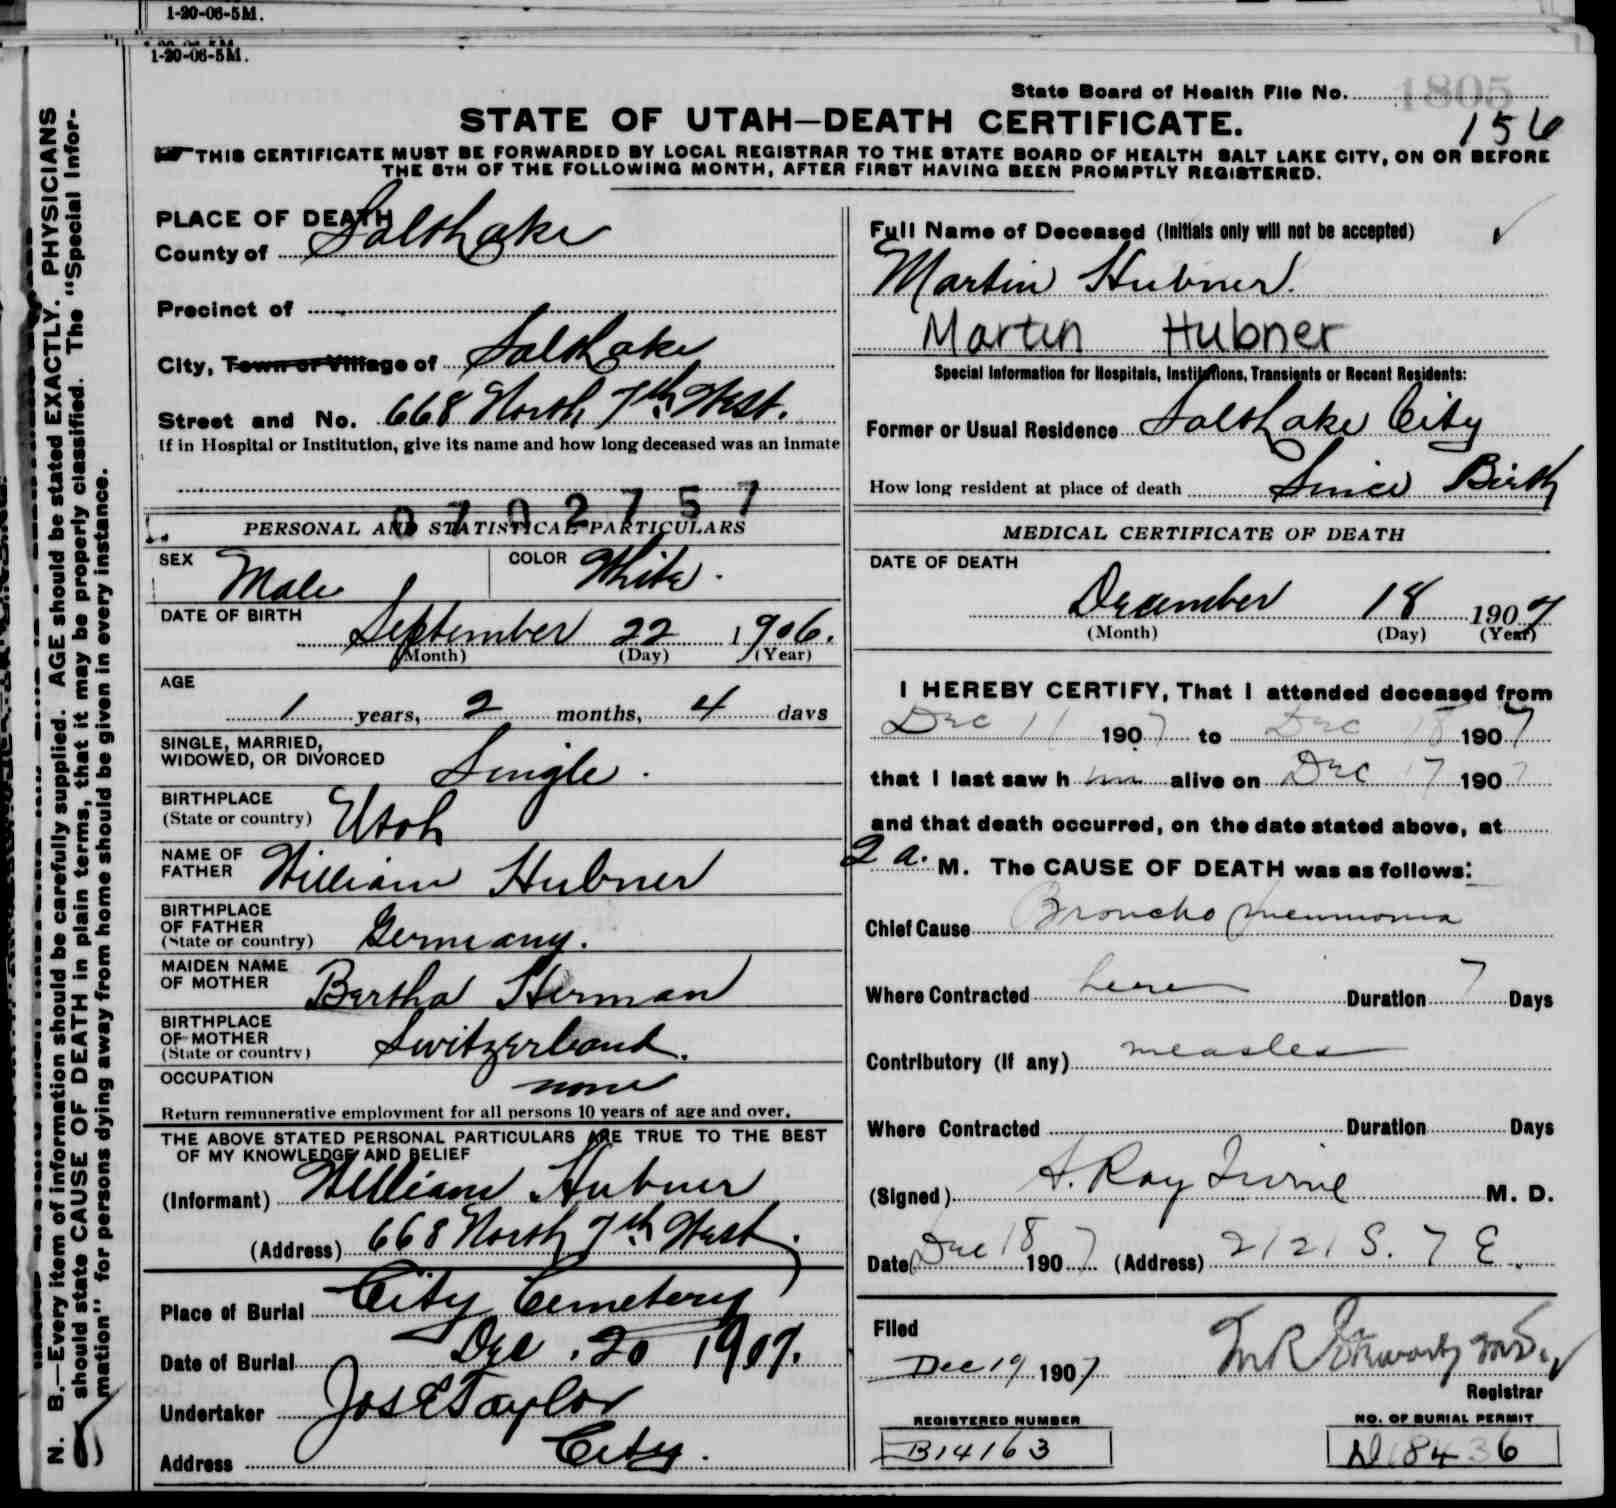 1-20-06-5M.
1-20-06-5M.
State Board of Health File No. 1805
STATE OF UTAH—DEATH CERTIFICATE.
156
THIS CERTIFICATE MUST BE FORWARDED BY LOCAL REGISTRAR TO THE STATE BOARD OF HEALTH SALT LAKE CITY, ON OR BEFORE
THE 5TH OF THE FOLLOWING MONTH, AFTER FIRST HAVING BEEN PROMPTLY REGISTERED.
N. B.—Every item of information should be carefully supplied. AGE should be stated EXACTLY. PHYSICIANS
should state CAUSE OF DEATH in plain terms, that it may be properly classified. The "Special Infor-
mation" for persons dying away from home should be given in every instance.
PLACE OF DEATH
County of Salt Lake
Precinct of
City, Town or Village of Salt Lake
Street and No. 668 North 7th West.
If in Hospital or Institution, give its name and how long deceased was an inmate
0702757
PERSONAL AND STATISTICAL PARTICULARS
SEX Male COLOR White.
DATE OF BIRTH
September 22 1906.
(Month) (Day) (Year)
AGE
1 years, 2 months, 4 days
SINGLE, MARRIED,
WIDOWED, OR DIVORCED Single.
BIRTHPLACE
(State or country) Utah
NAME OF
FATHER William Hubner
BIRTHPLACE
OF FATHER
(State or country) Germany.
MAIDEN NAME
OF MOTHER Bertha Herman
BIRTHPLACE
OF MOTHER
(State or country) Switzerland.
OCCUPATION none
Return remunerative employment for all persons 10 years of age and over.
THE ABOVE STATED PERSONAL PARTICULARS ARE TRUE TO THE BEST
OF MY KNOWLEDGE AND BELIEF
(Informant) William Hubner
(Address) 668 North 7th West.
Place of Burial City Cemetery
Date of Burial Dec. 20 1907.
Undertaker Jos E Taylor
Address City.
Full Name of Deceased (Initials only will not be accepted)
Martin Hubner.
Martin Hubner
Special Information for Hospitals, Institutions, Transients or Recent Residents:
Former or Usual Residence Salt Lake City
How long resident at place of death Since Birth
MEDICAL CERTIFICATE OF DEATH
DATE OF DEATH
December 18 1907
(Month) (Day) (Year)
I HEREBY CERTIFY, That I attended deceased from
Dec 11 1907 to Dec 18 1907
that I last saw h im alive on Dec 17 1907
and that death occurred, on the date stated above, at
2 a. M. The CAUSE OF DEATH was as follows:
Chief Cause Broncho pneumonia
Where Contracted here Duration 7 Days
Contributory (If any) measles
Where Contracted Duration Days
(Signed) A. Ray Irvine M. D.
Date Dec 18 1907 (Address) 2121 S. 7 E.
Filed
Dec 19 1907
Registrar
REGISTERED NUMBER
B14163
NO. OF BURIAL PERMIT
D18436